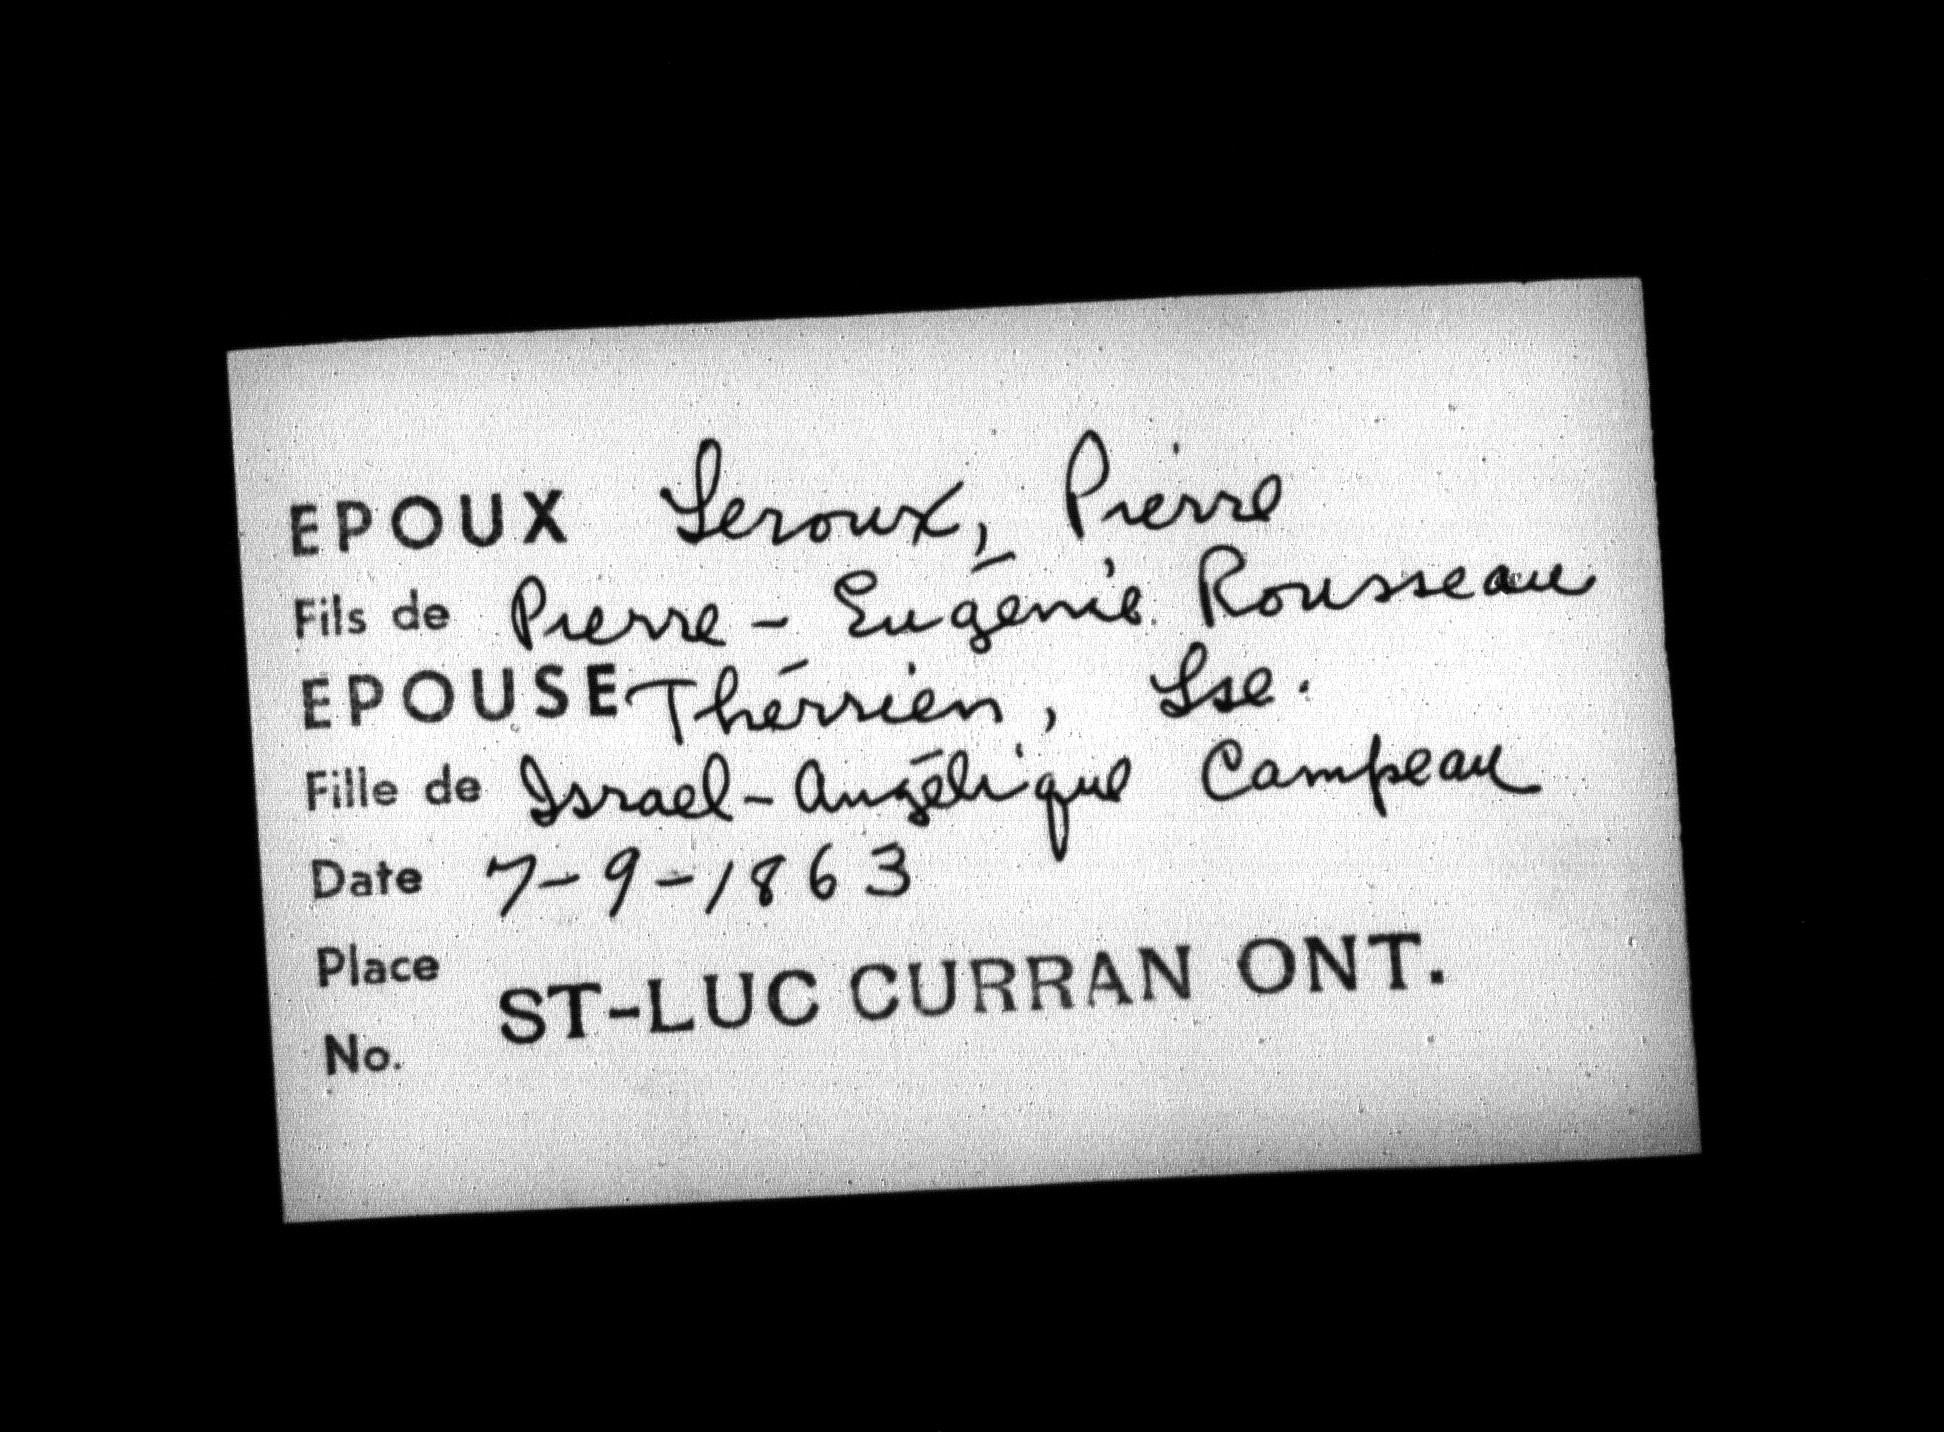 EPOUX Leroux, Pierre
Fils de Pierre - Eugénie Rousseau
EPOUSE Thérrien, Lse.
Fille de Israel - Angélique Campeau
Date 7-9-1863
Place ST-LUC CURRAN ONT.
No.